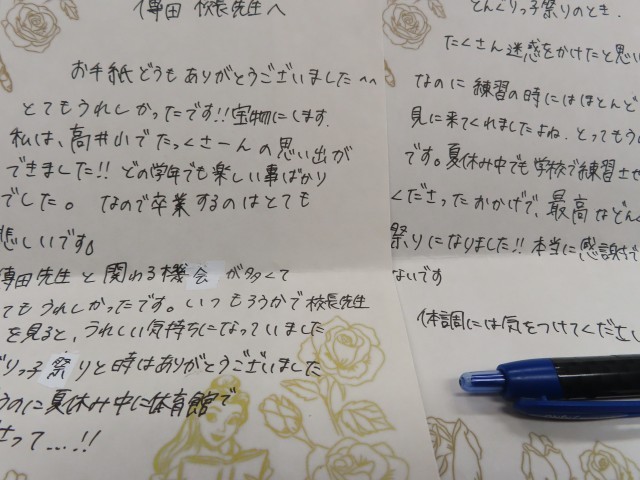 傳田 校長先生へ
お手紙どうもありがとうございました^^
とてもうれしかったです!!宝物にします.
私は、高井小でたっくさーんの思い出が
できました!! どの学年でも楽しい事ばかり
でした。 なので卒業するのはとても
悲しいです。
傳田先生と関わる機会が多くて
てもうれしかったです。いつもろうかで校長先生
を見ると、うれしい気持ちになっていました
ぐりっ子祭りと時はありがとうございました
うのに夏休み中に体育館で
さって....!!
とんぐりっ子祭りのとき.
たくさん迷惑をかけたと思い
なのに練習の時にはほとんど
見に来てくれましたよね.とってもう
です。夏休み中でも学校で練習させ
くださったおかげで、最高などん
祭りになりました!!本当に感謝で
ないです
体調には気をつけてください